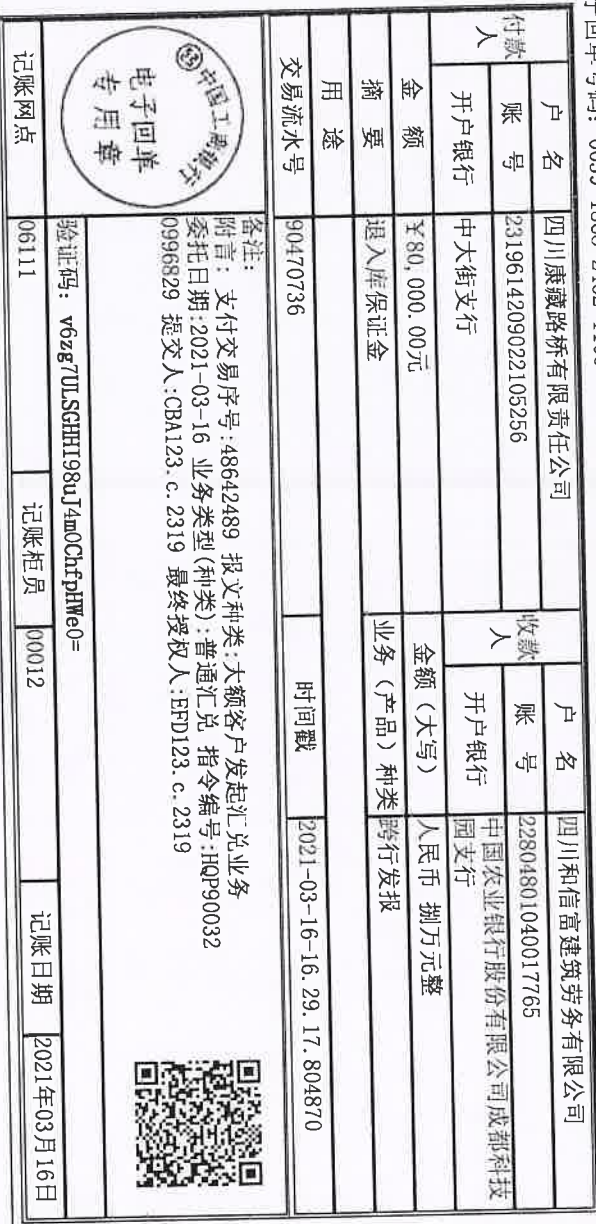 付款人 户 名 四川康藏路桥有限责任公司 收款人 户 名 四川和信富建筑劳务有限公司
账 号 2319614209022105256 账 号 22804801040017765
开户银行 中大街支行 开户银行 中国农业银行股份有限公司成都科技
园支行
金 额 ¥80,000.00元 金额（大写） 人民币 捌万元整
摘 要 退入库保证金 业务（产品）种类 跨行发报
用 途
交易流水号 90470736 时间戳 2021-03-16-16.29.17.804870
中国工商银行
电子回单
专用章
备注:
附言: 支付交易序号:48642489 报文种类:大额客户发起汇兑业务
委托日期:2021-03-16 业务类型(种类):普通汇兑 指令编号:HQP90032
0996829 提交人:CBA123.c.2319 最终授权人:EFD123.c.2319
验证码: v6zg7ULSGHHI98uJ4m0ChfpHWe0=
记账网点 06111 记账柜员 00012 记账日期 2021年03月16日